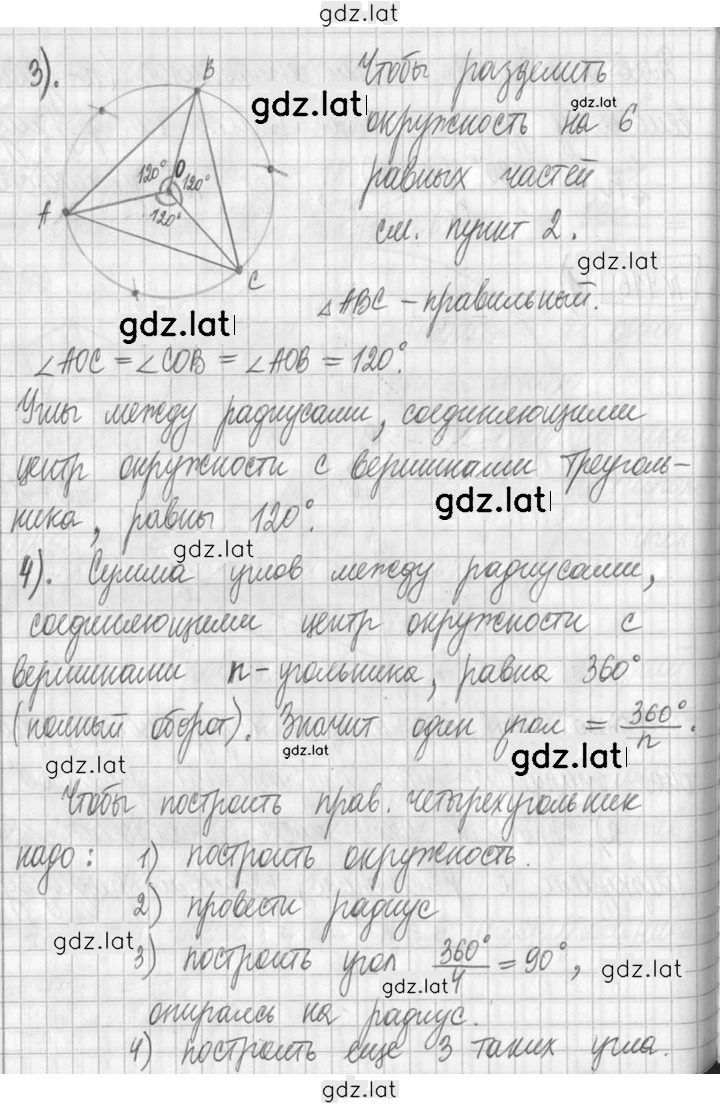 gdz.lat
3).
B
Чтобы разделить
gdz.lat
gdz.lat
окружность на 6
120° O 120°
равных частей
A
120°
см. пункт 2.
gdz.lat
C
△ABC – правильный.
gdz.lat
∠AOC = ∠COB = ∠AOB = 120°.
Углы между радиусами, соединяющими
центр окружности с вершинами треуголь-
gdz.lat
ника, равны 120°.
gdz.lat
4). Сумма углов между радиусами,
соединяющими центр окружности с
вершинами n-угольника, равна 360°
(полный оборот). Значит один угол = 360°/n.
gdz.lat
gdz.lat
gdz.lat
Чтобы построить прав. четырехугольник
надо: 1) построить окружность.
2) провести радиус
gdz.lat
3) построить угол 360°/4 = 90°,
gdz.lat
gdz.lat
опираясь на радиус.
4) построить еще 3 таких угла.
gdz.lat